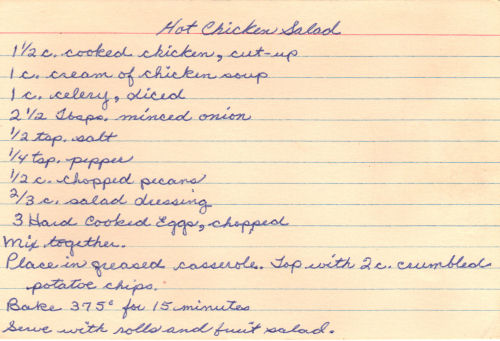 Hot Chicken Salad
1 1/2 c. cooked chicken, cut-up
1 c. cream of chicken soup
1 c. celery, diced
2 1/2 Tbsps. minced onion
1/2 tsp. salt
1/4 tsp. pepper
1/2 c. chopped pecans
2/3 c. salad dressing
3 Hard Cooked Eggs, chopped
Mix together.
Place in greased casserole. Top with 2 c. crumbled
potatoe chips.
Bake 375° for 15 minutes
Serve with rolls and fruit salad.